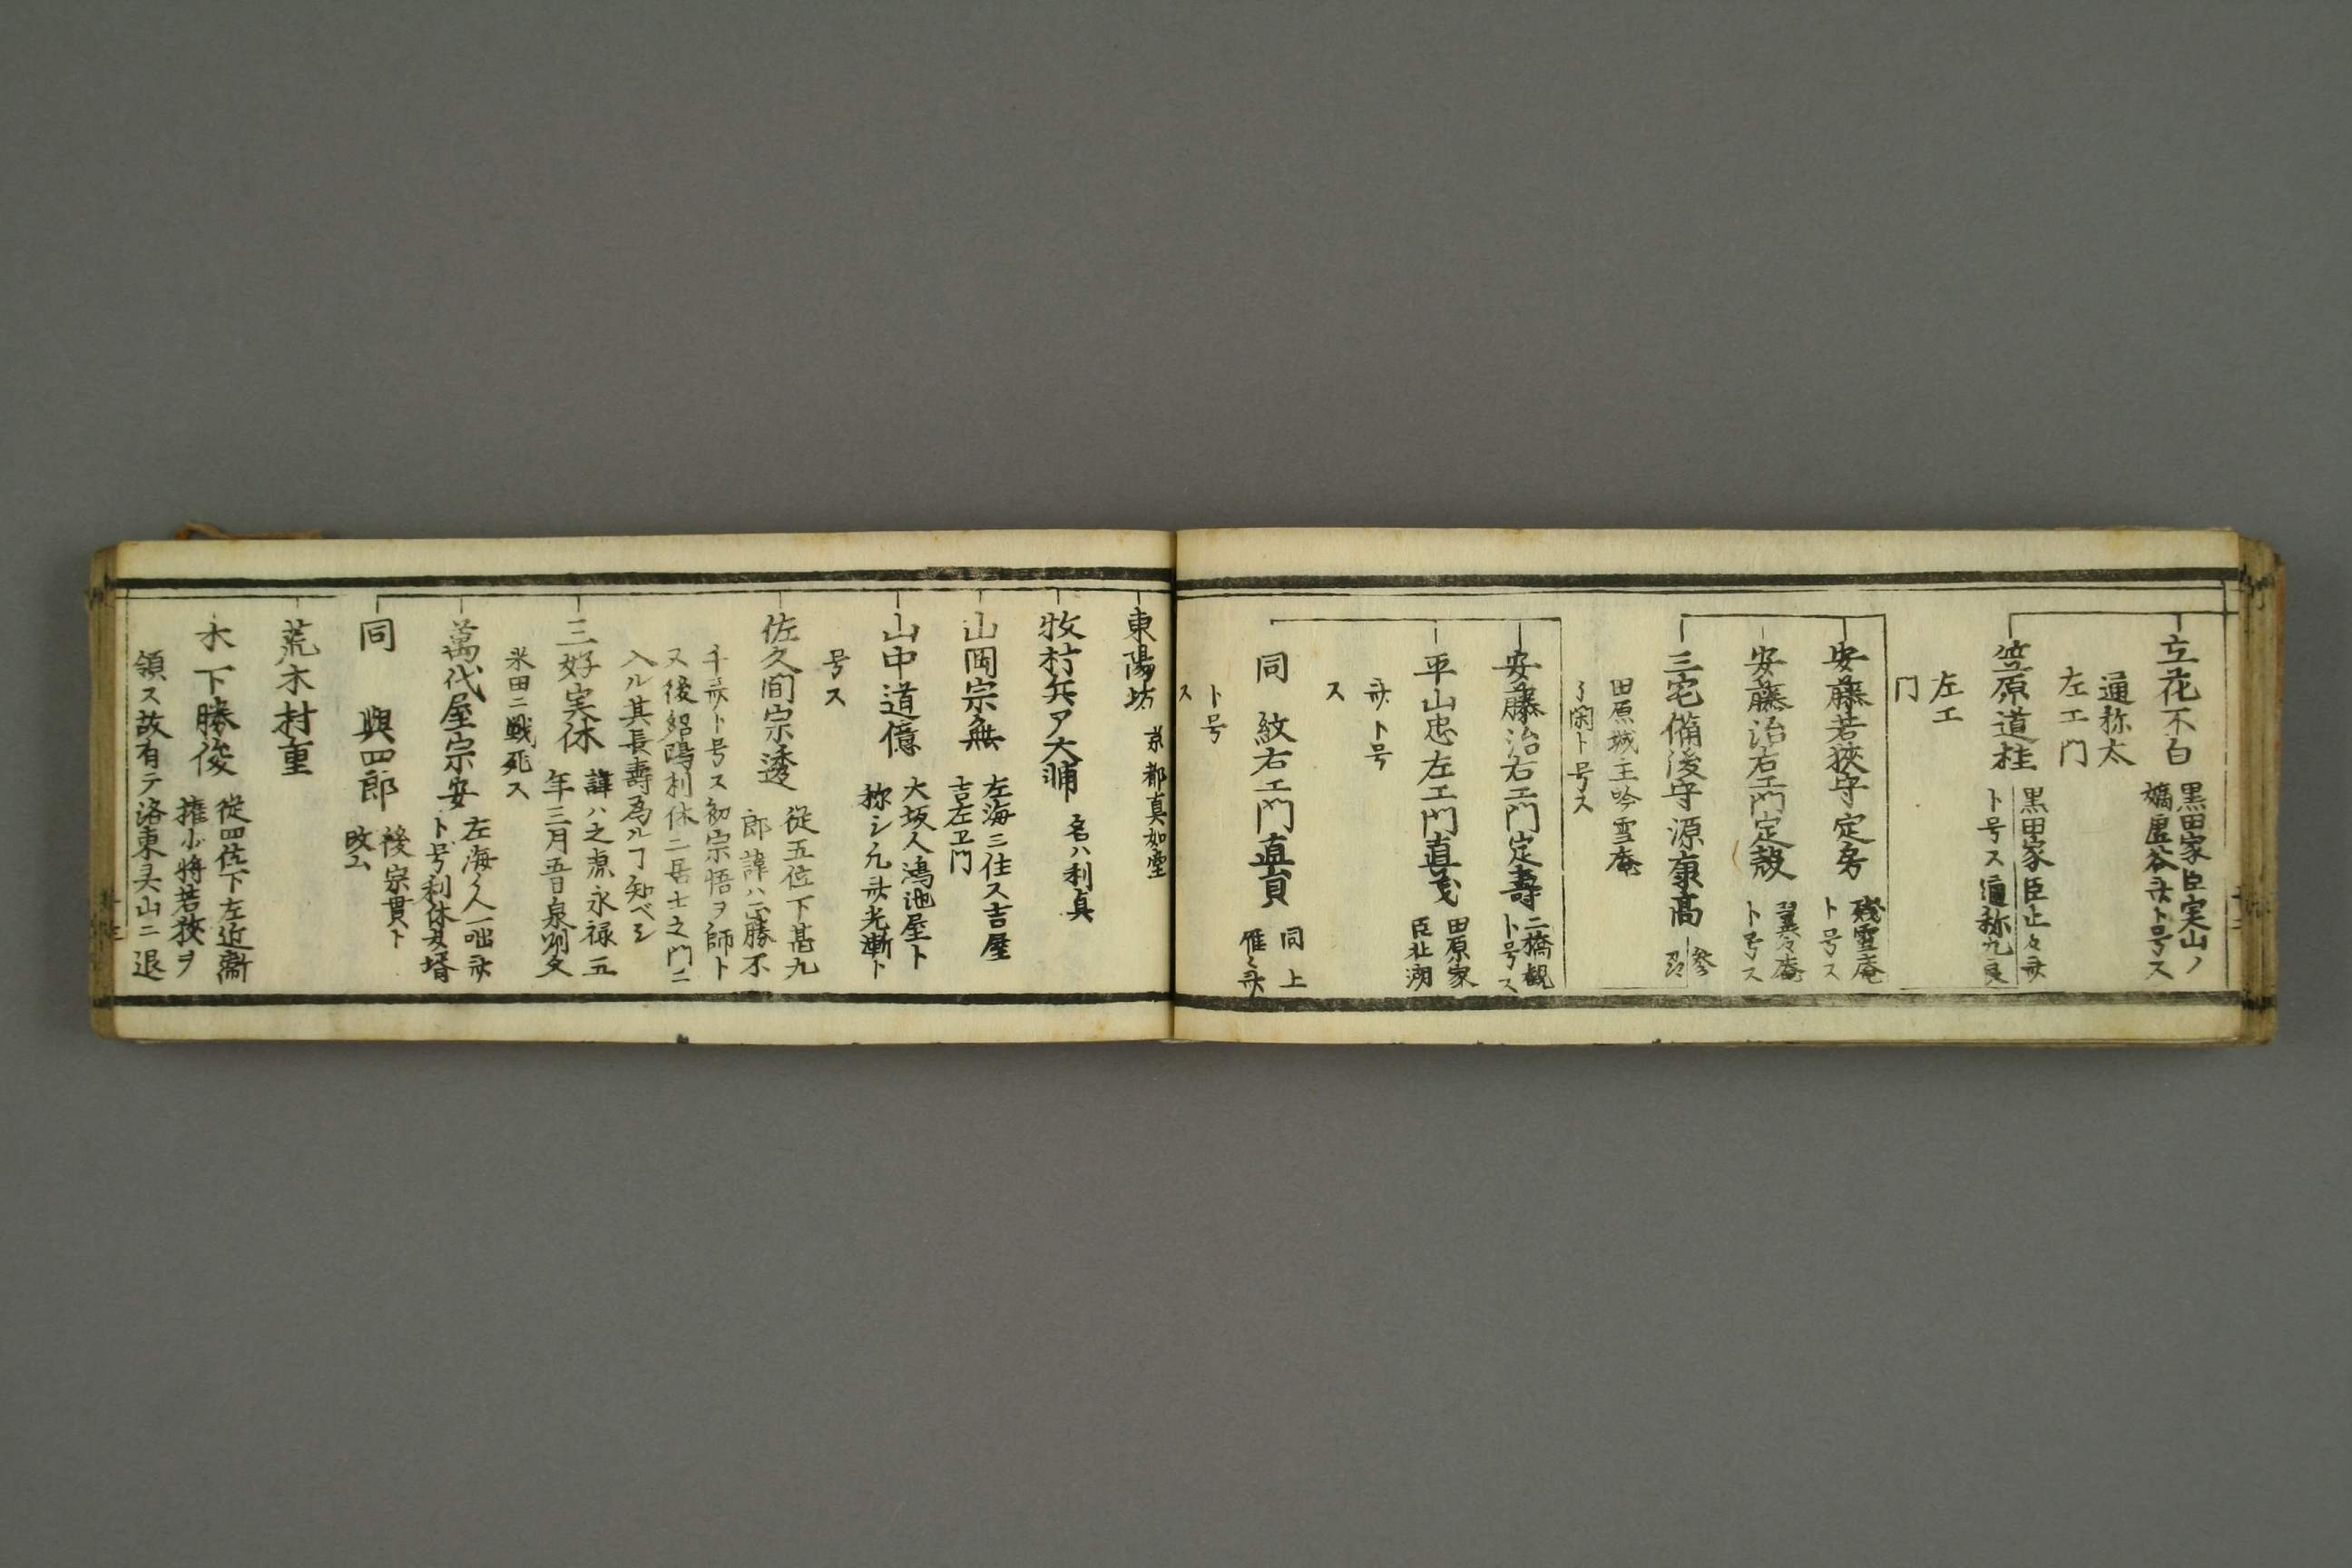 立花不白
黒田家臣実山ノ
嫡虚谷斎ト号ス
通称太
左エ門
笠原道桂
黒田家臣止々斎
ト号ス通称九良
左エ
门
安藤若狹守定房
残雪庵
ト号ス
安藤治右エ門定殼
翼々庵
ト号ス
三宅備後守源康高
参
田原城主吟雪庵
了閑ト号ス
安藤治右エ門定壽
二橋觀
ト号ス
平山忠左エ門直茂
田原家
臣社湖
斎ト号
ス
同 紋右エ門直貢
同上
雁々斎
ト号
ス
東陽坊
京都真如堂
牧村兵ア大輔
名ハ利真
山岡宗無
左海ニ住ス吉屋
吉左卫門
山中道億
大坂人鴻池屋ト
称シ元斎光漸ト
号ス
佐久間宗透
従五位下甚九
郎諱ハ正勝不
千斎ト号ス初宗悟ヲ師ト
ス後紹鴎利休二居士之門ニ
入ル其長壽為ルヿ知ベシ
三好実休
諱ハ之康永禄五
年三月五日泉刕久
米田ニ戦死ス
萬代屋宗安
左海ノ人一咄斎
ト号利休女壻
同 與四郎
後宗貫ト
改ム
荒木村重
木下勝俊
従四位下左近衞
権少将若狭ヲ
領ス故有テ洛東灵山ニ退